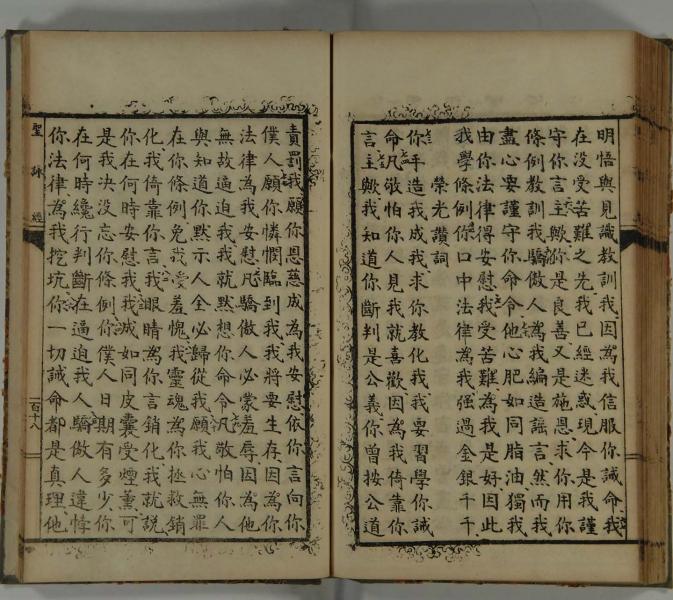 明悟與見識教訓我因為我信服你誡命我
在沒受苦難之先我已經迷惑現今是我謹
守你言主歟你是良善又是施恩求你用你
條例教訓我驕傲人為我編造謊言然而我
盡心要謹守你命令他心肥如同脂油獨我
由你法律得安慰我受苦難為我是好因此
我學條例你口中法律為我强過金銀千千
榮光讚詞
你手造我成我求你教化我我要習學你誡
命凡敬怕你人見我就喜歡因為我倚靠你
言主歟我知道你斷判是公義你曾按公道
責罰我願你恩慈成為我安慰依你言向你
僕人願你憐憫臨到我我將要生存因為你
法律為我安慰凡驕傲人必蒙羞辱因為他
無故逼迫我我就默想你命令凡敬怕你人
與知道你默示人全必歸從我願我心無罪
在你條例免我受羞愧我靈魂為你拯救銷
化我倚靠你言我眼睛為你言銷化我就說
你在何時安慰我我滅如同皮囊受煙薰可
是我決沒忘你條例你僕人日期有多少你
在何時纔行判斷在逼迫我人驕傲人違悖
你法律為我挖坑你一切誡命都是真理他
聖詠經
一百十八